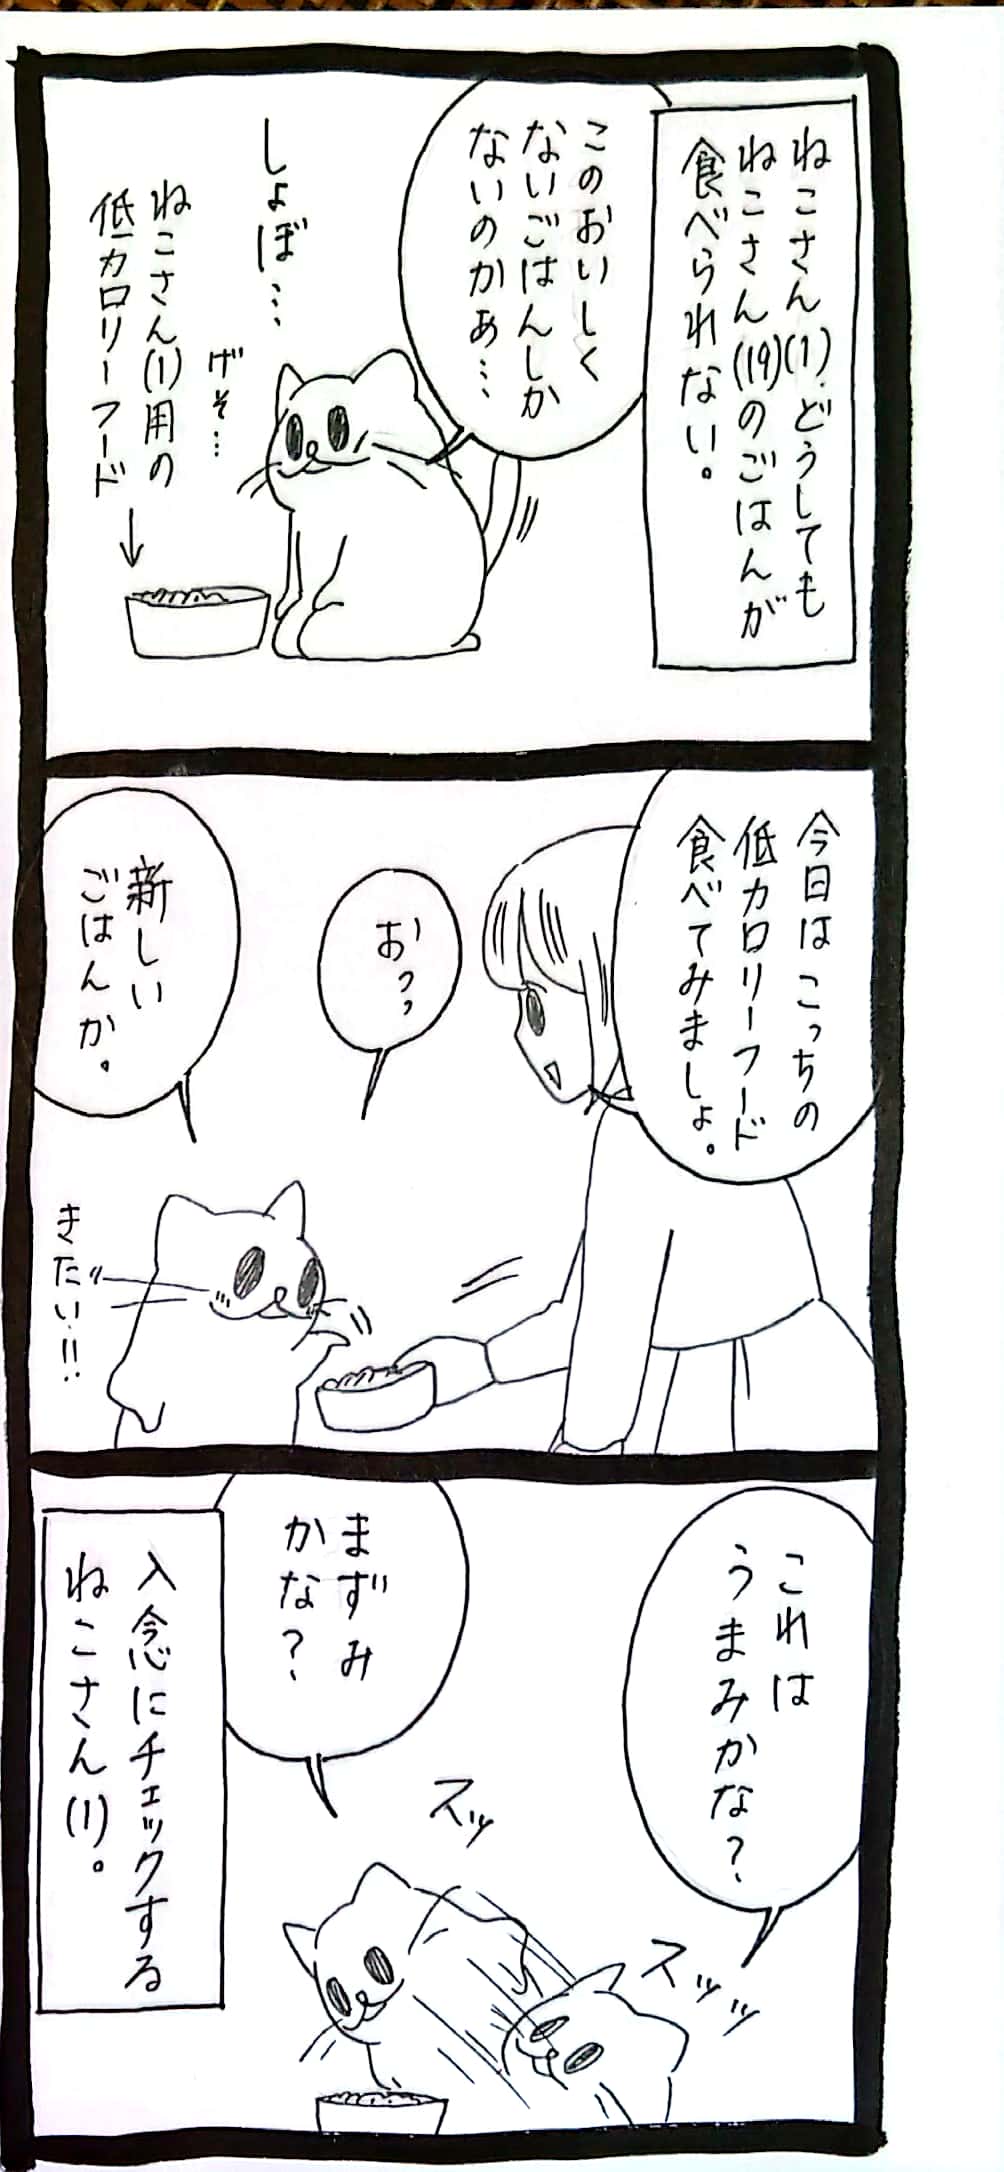 ねこさん(1)、どうしても
ねこさん(19)のごはんが
食べられない。
このおいしく
ないごはんしか
ないのかぁ…
しょぼ…
げそ…
ねこさん(1)用の
低カロリーフード
今日はこっちの
低カロリーフード
食べてみましょ。
おっ、
新しい
ごはんか。
きたい!!
これは
うまみかな?
スッ
スッッ
まずみ
かな?
入念にチェックする
ねこさん(1)。